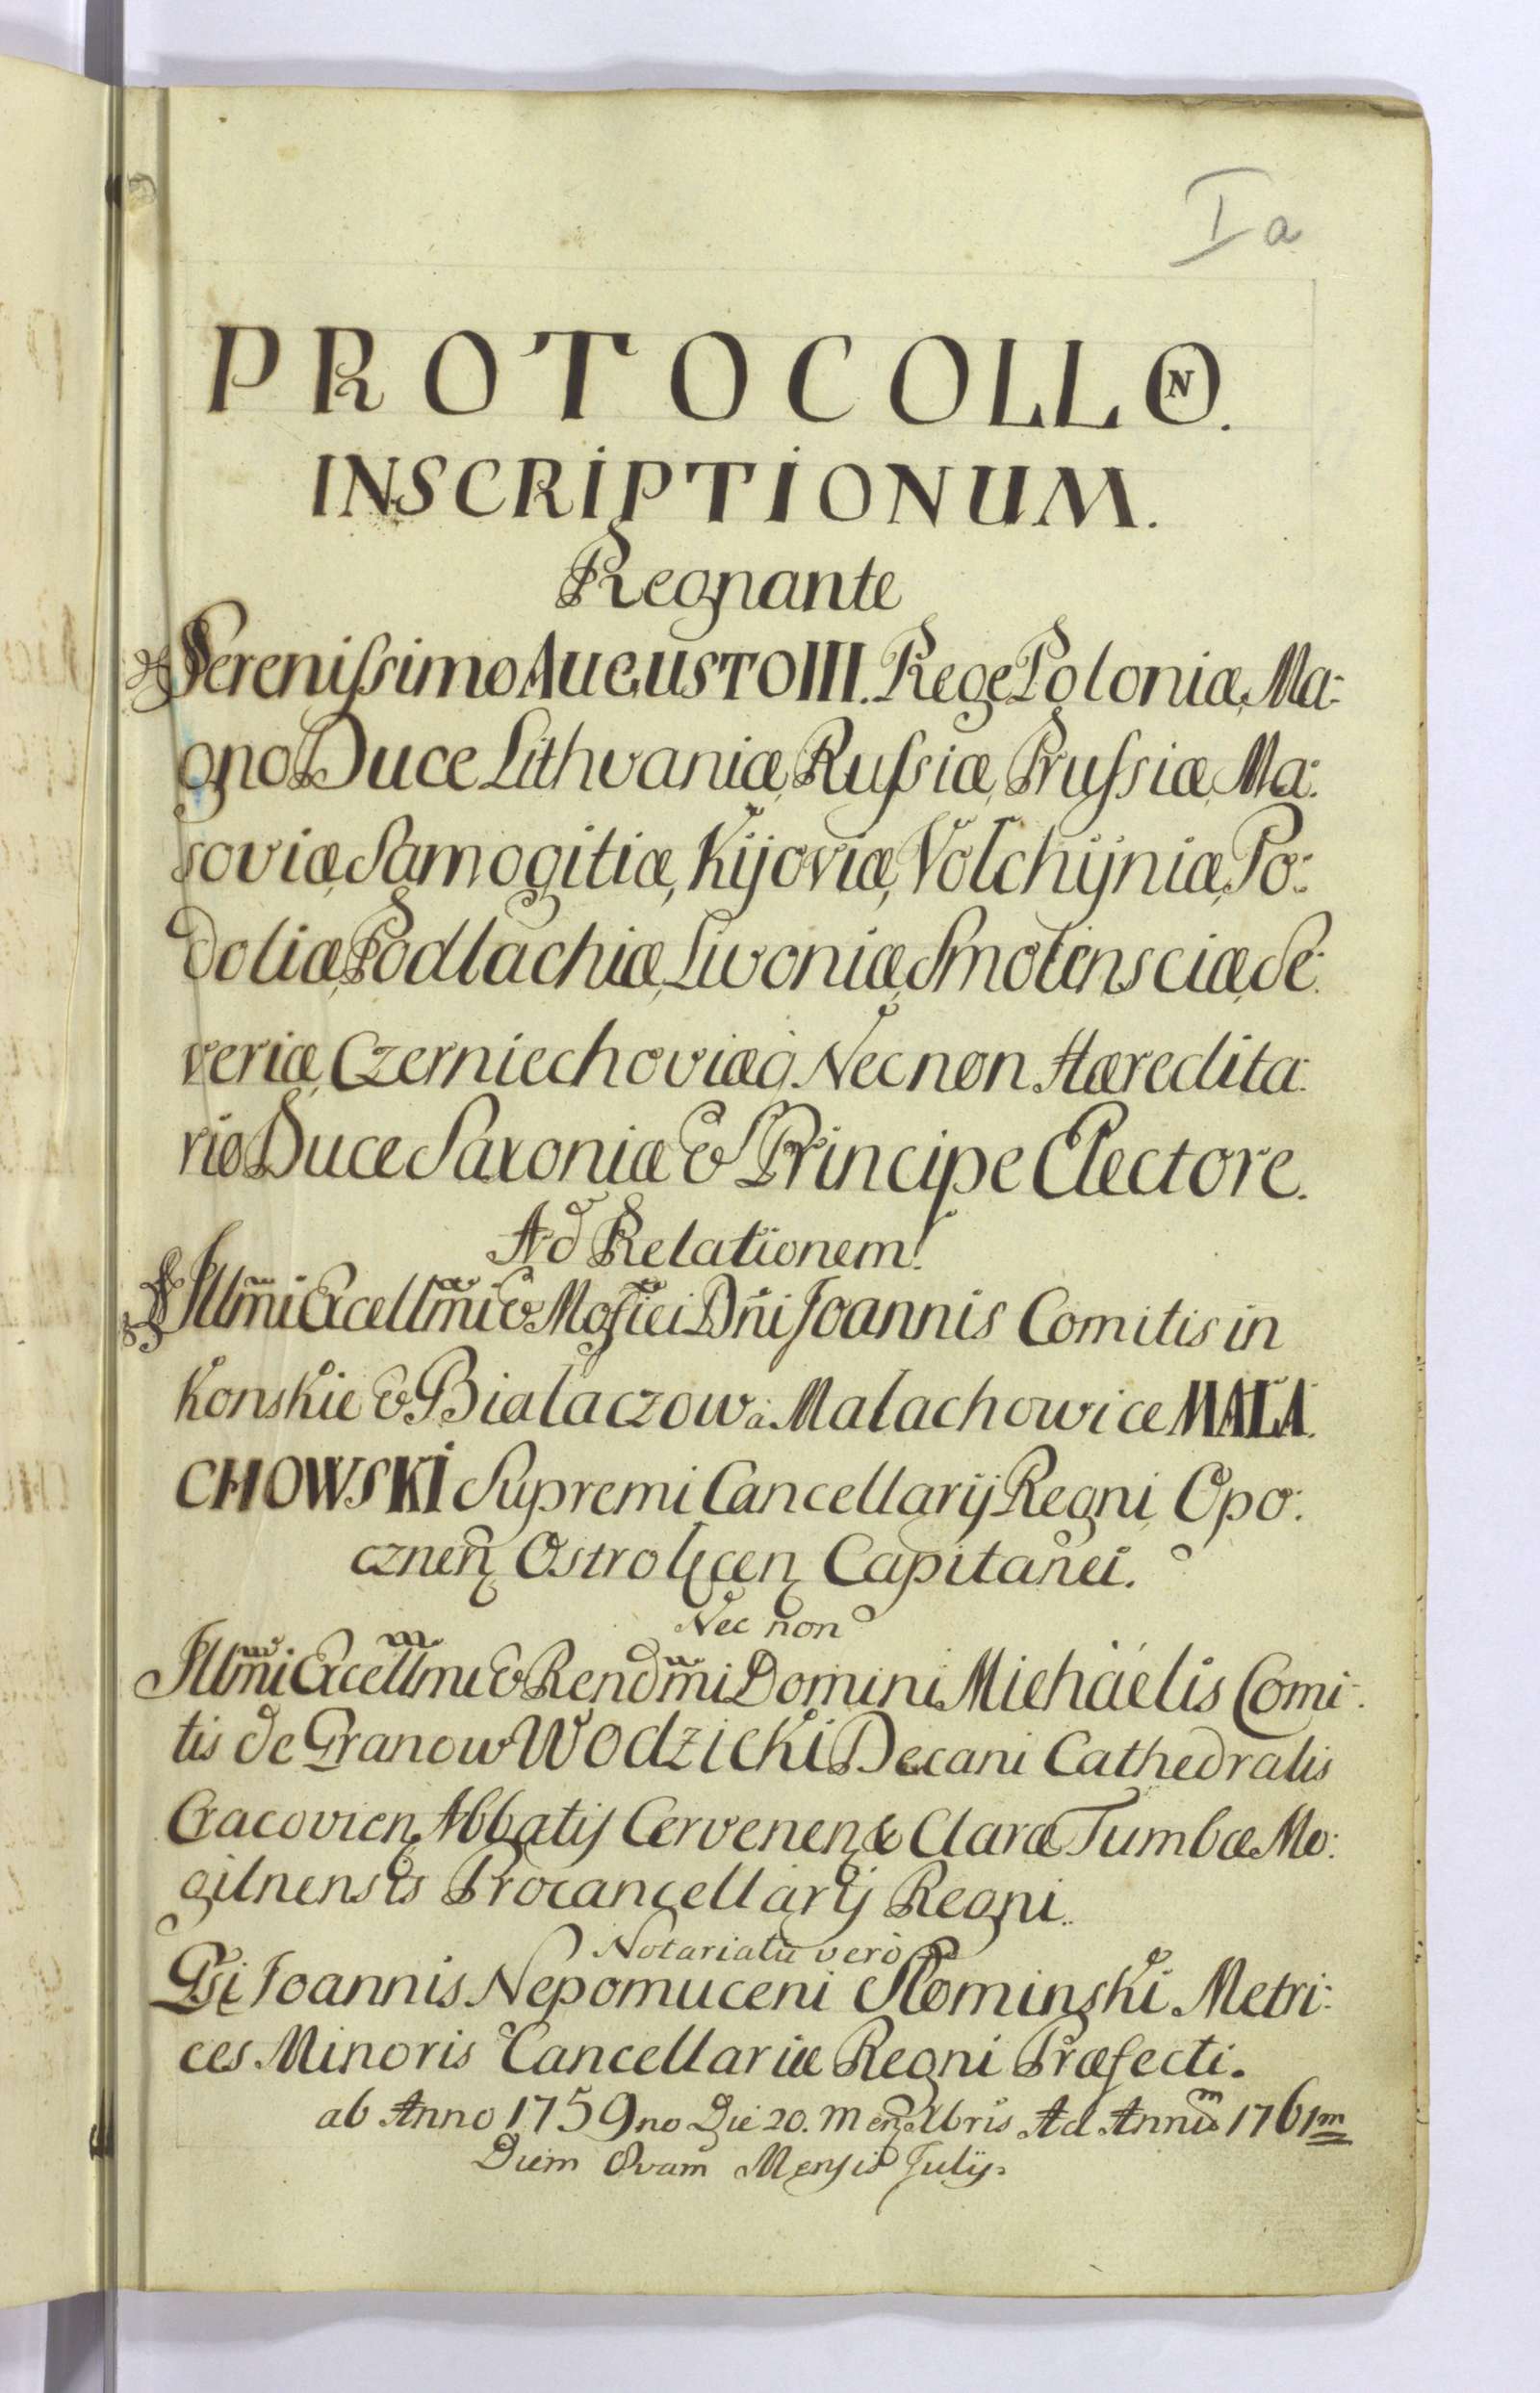 I a
PROTOCOLLON.
INSCRIPTIONUM.
Regnante
Serenissimo AUGUSTO III. Rege Poloniæ, Ma:
gno Duce Lithvaniæ, Russiæ, Prussiæ, Ma:
soviæ, Samogitiæ, Kijoviæ, Volchijniæ, Po:
doliæ, Podlachiæ, Livoniæ, Smolensciæ, Se:
veriæ, Czerniechoviæq Nec non Hæredita:
rio Duce Saxoniæ & Principe Electore.
Ad Relationem.
Illm̃i Excellm̃i & Mag̃fici Dñi Joannis Comitis in
Konskie & Bialaczow a Malachowice MALA:
CHOWSKI Supremi Cancellarij Regni, Opo:
cznen̨ Ostrolęcen̨ Capitanei.
Nec non
Illm̃i Excellm̃i & Rendm̃i Domini Michaelis Comi:
tis de Granow WODZICKI Decani Cathedralis
Cracovien̨, Abbatis Cervenen̨ & Claræ Tumbæ Mo:
gilnensis Procancellarij Regni.
Notariatu vero
Gsi Joannis Nepomuceni Slominski Metri:
ces Minoris Cancellariæ Regni Præfecti.
ab Anno 1759no Die 20. Men̨ Xbris Ad Annum 1761m
Diem 8vam Mensis Julij.